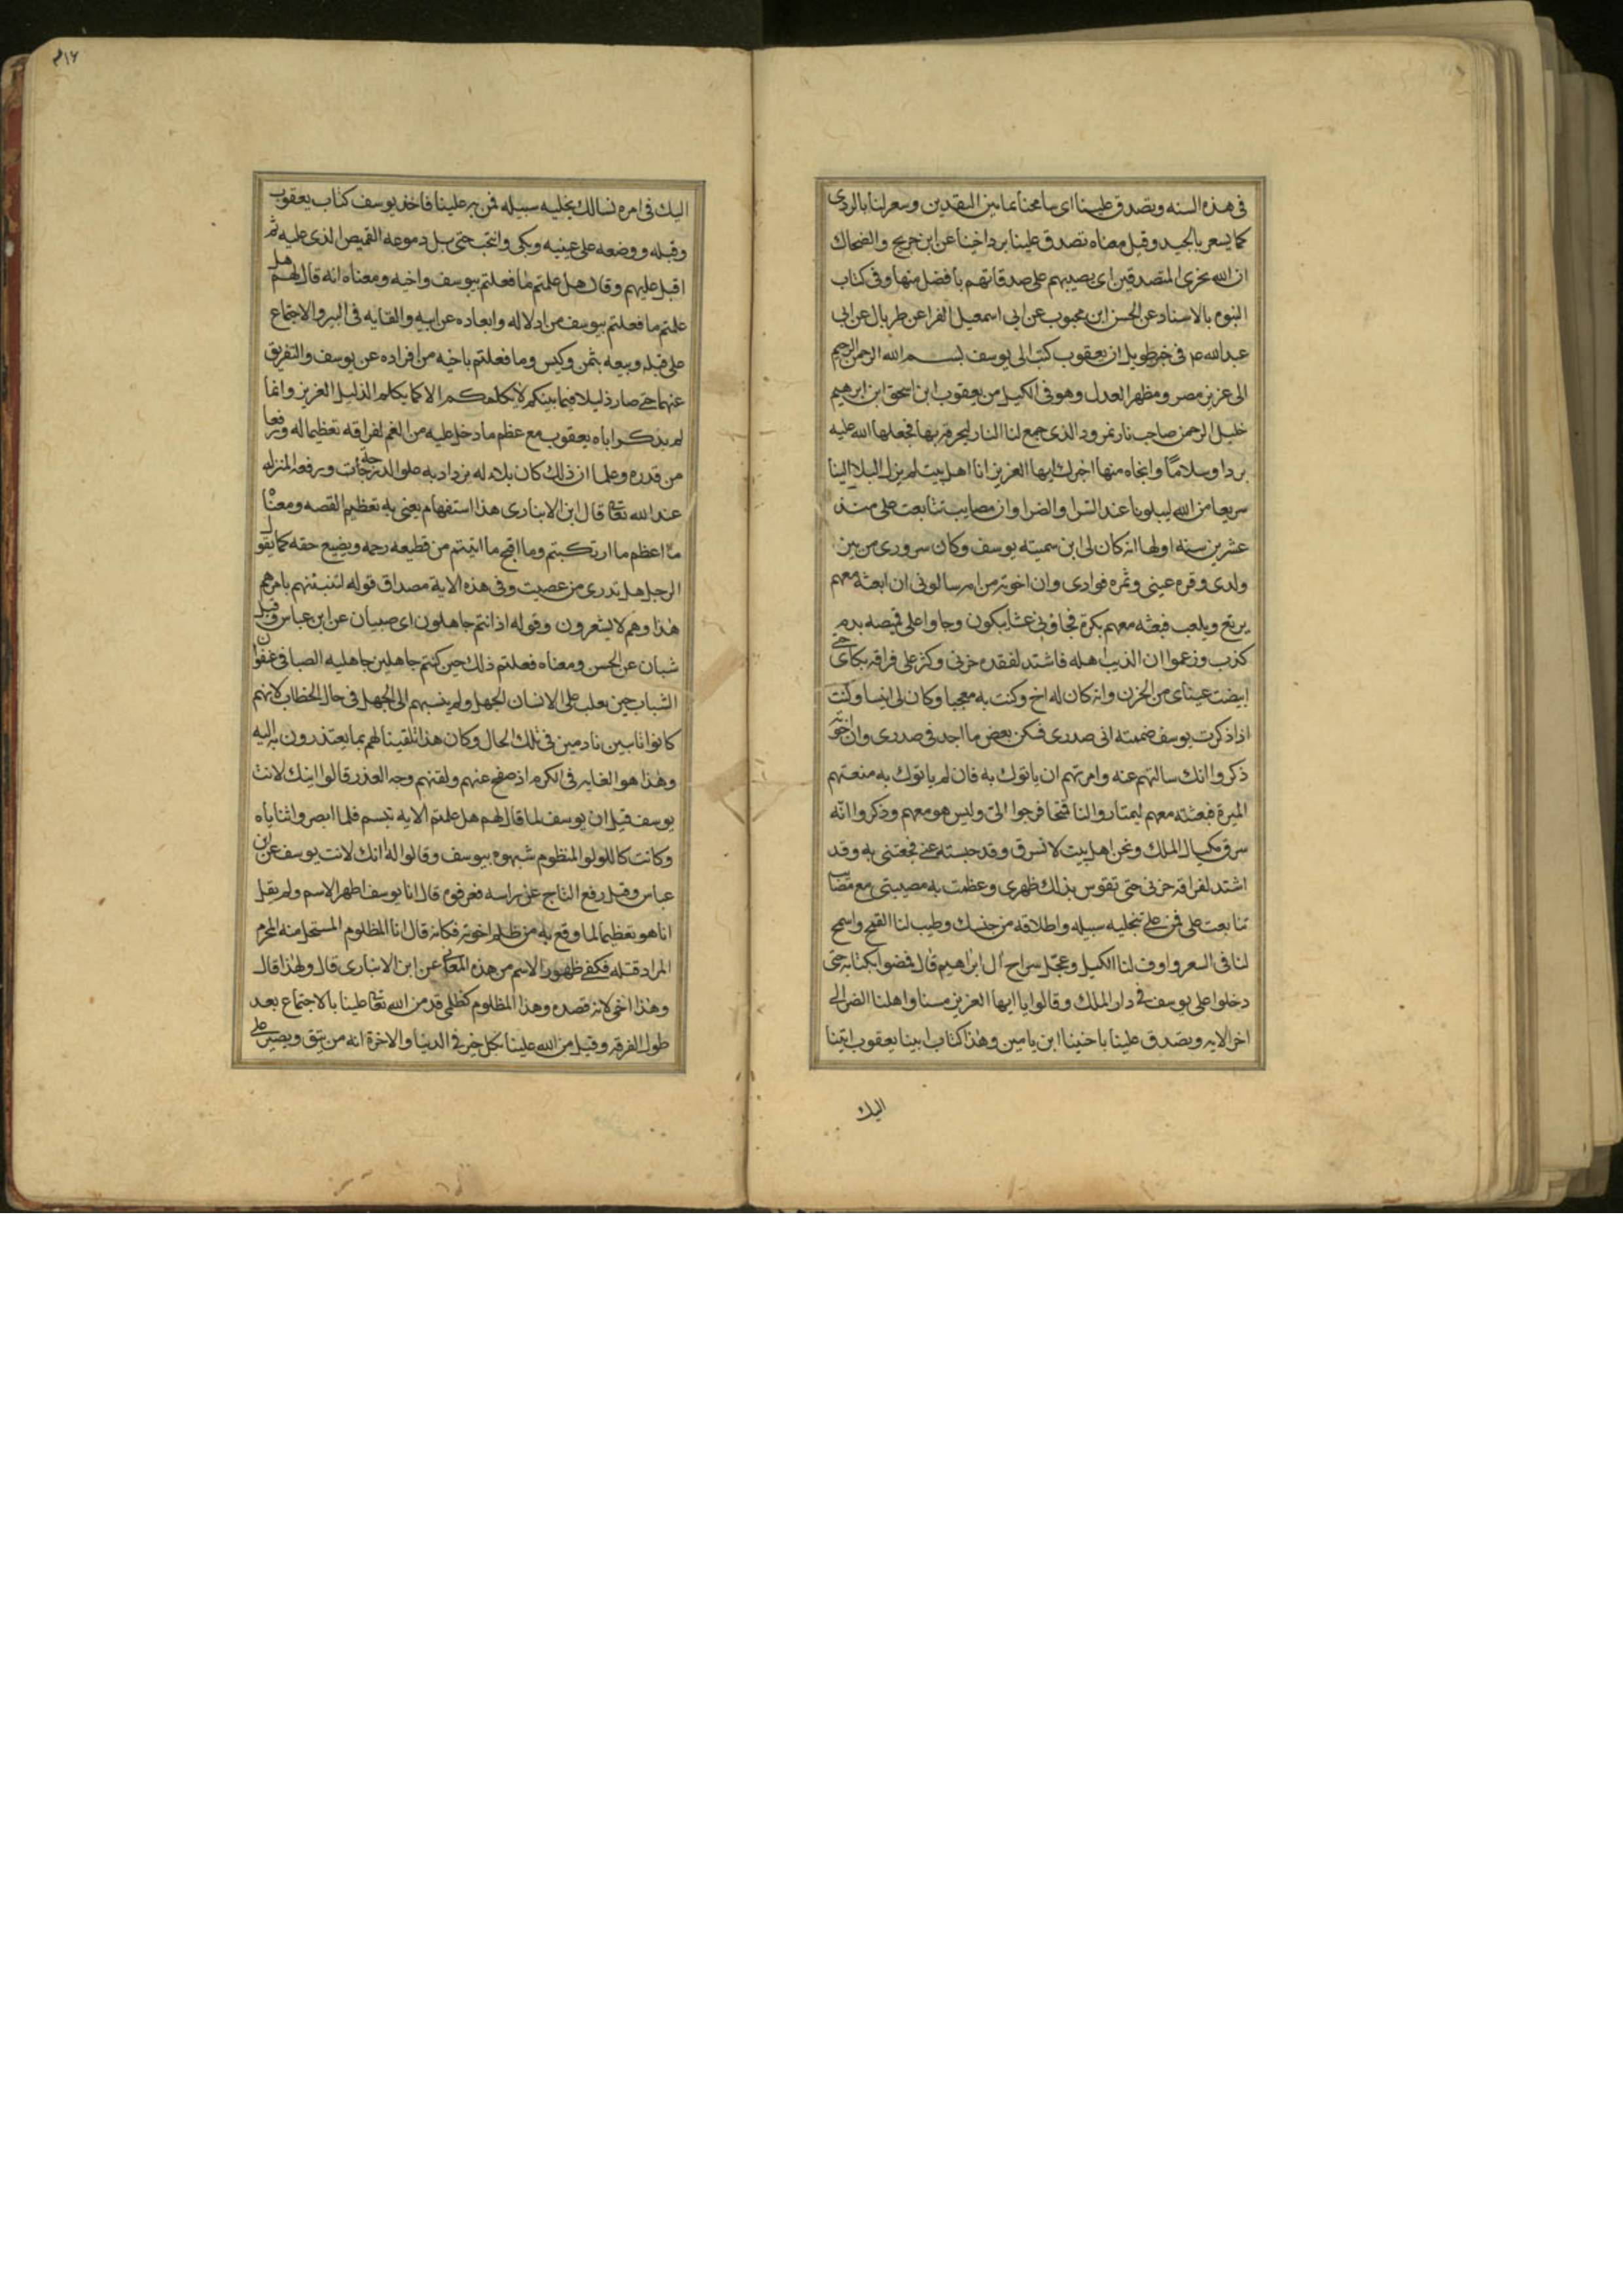 فى هذه السنه وتصدق علينا اى سامحنا بما بين النقدين وسعر لنا بالردى
كما يسعر بالجيد وقيل معناه تصدق علينا برد اخينا عن ابن جريج والضحاك
ان الله يجزى المتصدقين اى يصيبهم على صدقاتهم بافضل منها وفى كتاب
النبوه بالاسناد عن الحسن ابن محبوب عن ابى اسمعيل الفرا عن طربال عن ابى
عبدالله ع فى خبر طويل ان يعقوب كتب الى يوسف بسم الله الرحمن الرحيم
الى عزيز مصر ومظهر العدل وموفى الكيل من يعقوب ابن اسحق ابن ابرهيم
خليل الرحمن صاحب نار نمرود الذى جمع لنا النار ليحرقه بها فجعلها الله عليه
بردا وسلامًا وانجاه منها اخبرك ايها العزيز انا اهل بيت لم يزل البلا الينا
سريعا من الله ليبلونا عند السرا والضرا وان مصايب تتابعت على منذ
عشرين سنه اولها انه كان لى ابن سميته يوسف وكان سرورى من بين
ولدى وقره عينى وثمره فوادى وان اخوته من امه سالونى ان ابعثه معهم
يرتع ويلعب فبعثه معهم بكرة فجاؤنى عشا يبكون وجاوا على قميصه بدم
كذب وزعموا ان الذيب اهله فاشتد لفقده حزنى وكثر على فراقه بكاى حتى
ابيضت عيناى من الحزن وانه كان له اخ وكنت به معجبا وكان لى انيسا وكنت
اذا ذكرت يوسف ضممته الى صدرى فسكن بعض ما اجد فى صدرى وان اخوته
ذكروا انك سالتهم عنه وامرتهم ان ياتوك به فان لم ياتوك به منعتهم
الميرة فبعثته معهم ليمتاروا لنا قمحا فرجوا الىّ وليس هو معهم وذكروا انّه
سرق مكيال الملك ونحن اهل بيت لا نسرق وقد حبسته عنى فجعتنى به وقد
اشتد لفراقه حزنى حتى تقوس بذلك ظهرى وعظمت به مصيبتى مع مصايب
تتابعت على فمن على بتخليه سبيله واطلاقه من حبسك وطيب لنا القمح واسمح
لنا فى السعر واوف لنا الكيل وعجّل سراح ال ابراهيم قال فمضوا بكتابه حتى
دخلوا على يوسف فى دار الملك وقالوا يا ايها العزيز مسنا واهلنا الضر الى
اخر الايه وتصدق علينا باخينا ابن يامين وهذا كتاب ابينا يعقوب اتينا
اليك
٤١٦
اليك فى امره نسالك بتخليه سبيله فمن به علينا فاخذ يوسف كتاب يعقوب
وقبله ووضعه على عينيه وبكى وانتحب حتى بل دموعه القميص الذى عليه ثم
اقبل عليهم وقال هل علمتم ما فعلتم بيوسف واخيه ومعناه انه قال لهم هل
علمتم ما فعلتم بيوسف من ادلاله وابعاده عن ابيه والقايه فى البير والاجتماع
على قتله وبيعه بثمن وكيس وما فعلتم باخيه من افراده عن يوسف والتفريق
عنهما حتى صار ذليلا فيما بينكم لا يكلمكم الا كما يكلم الذليل العزيز وانما
لم يذكر اباه يعقوب مع عظم ما دخل عليه من الغم لفراقه تعظيما له ورفعا
من قدره وعلما ان ذلك كان بلاء له يزداد به علو الدرجات ورفعه المنزله
عند الله تعالى قال ابن الانبارى هذا استفهام يعنى به تعظيم القصه ومعناه
ما اعظم ما ارتكبتم وما اقبح ما اتيتم من قطيعه رحمه وتضيع حقه كما يقول
الرجل هل تدرى من عصيت وفى هذه الاية مصداق قوله لتنبئنهم بامرهم
هذا وهم لا يشعرون وقوله اذ انتم جاهلون اى صبيان عن ابن عباس وقيل
شبان عن الحسن ومعناه فعلتم ذلك حين كنتم جاهلين جاهليه الصبا فى عنفوان
الشباب حين يغلب على الانسان الجهل ولم ينسبهم الى الجهل فى حال الخطاب لانهم
كانوا تايبين نادمين فى تلك الحال وكان هذا تلقينا لهم بما يعتذرون به اليه
وهذا هو الغايه فى الكرم اذ صفح عنهم ولقنهم وجه العذر قالوا اينك لانت
يوسف قيل ان يوسف لما قال لهم هل علمتم الايه تبسم فلما ابصروا ثناياه
وكانت كاللولو المنظوم شبهوه بيوسف وقالوا له انك لانت يوسف عن ابن
عباس وقيل رفع التاج عن راسه فعرفوه قال انا يوسف اظهر الاسم ولم يقل
انا هو تعظيما لما وقع به من ظلم اخوته فكانه قال انا المظلوم المستحل منه المحرم
المراد قتله فكفى ظهور الاسم من هذه المعانى عن ابن الانبارى قال ولهذا قال
وهذا اخى لانه قصده وهذا المظلوم كظلمى قد من الله تعالى علينا بالاجتماع بعد
طول الفرقه وقيل من الله علينا بكل خير فى الدنيا والاخرة انه من يتق ويصبر على